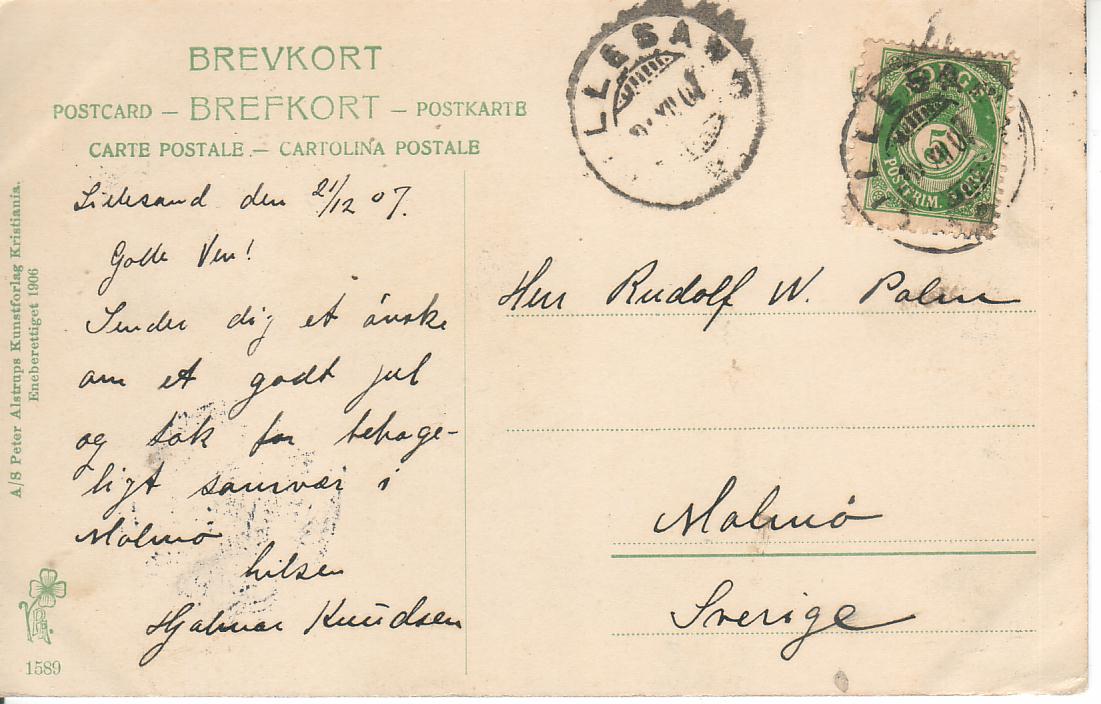 BREVKORT
POSTCARD – BREFKORT – POSTKARTE
CARTE POSTALE – CARTOLINA POSTALE
Lillesand den 21/12 07.
Gode Ven!
Sender dig et önske
om et godt jul
og tak for behage-
ligt samvær i
Malmö
hilsen
Hjalmar Knudsen
Herr Rudolf W. Palm
Malmö
Sverige
A/S Peter Alstrups Kunstforlag Kristiania.
Eneberettiget 1906
1589
LLESAN
XII 07
NORGE
5
POSTFRIM.